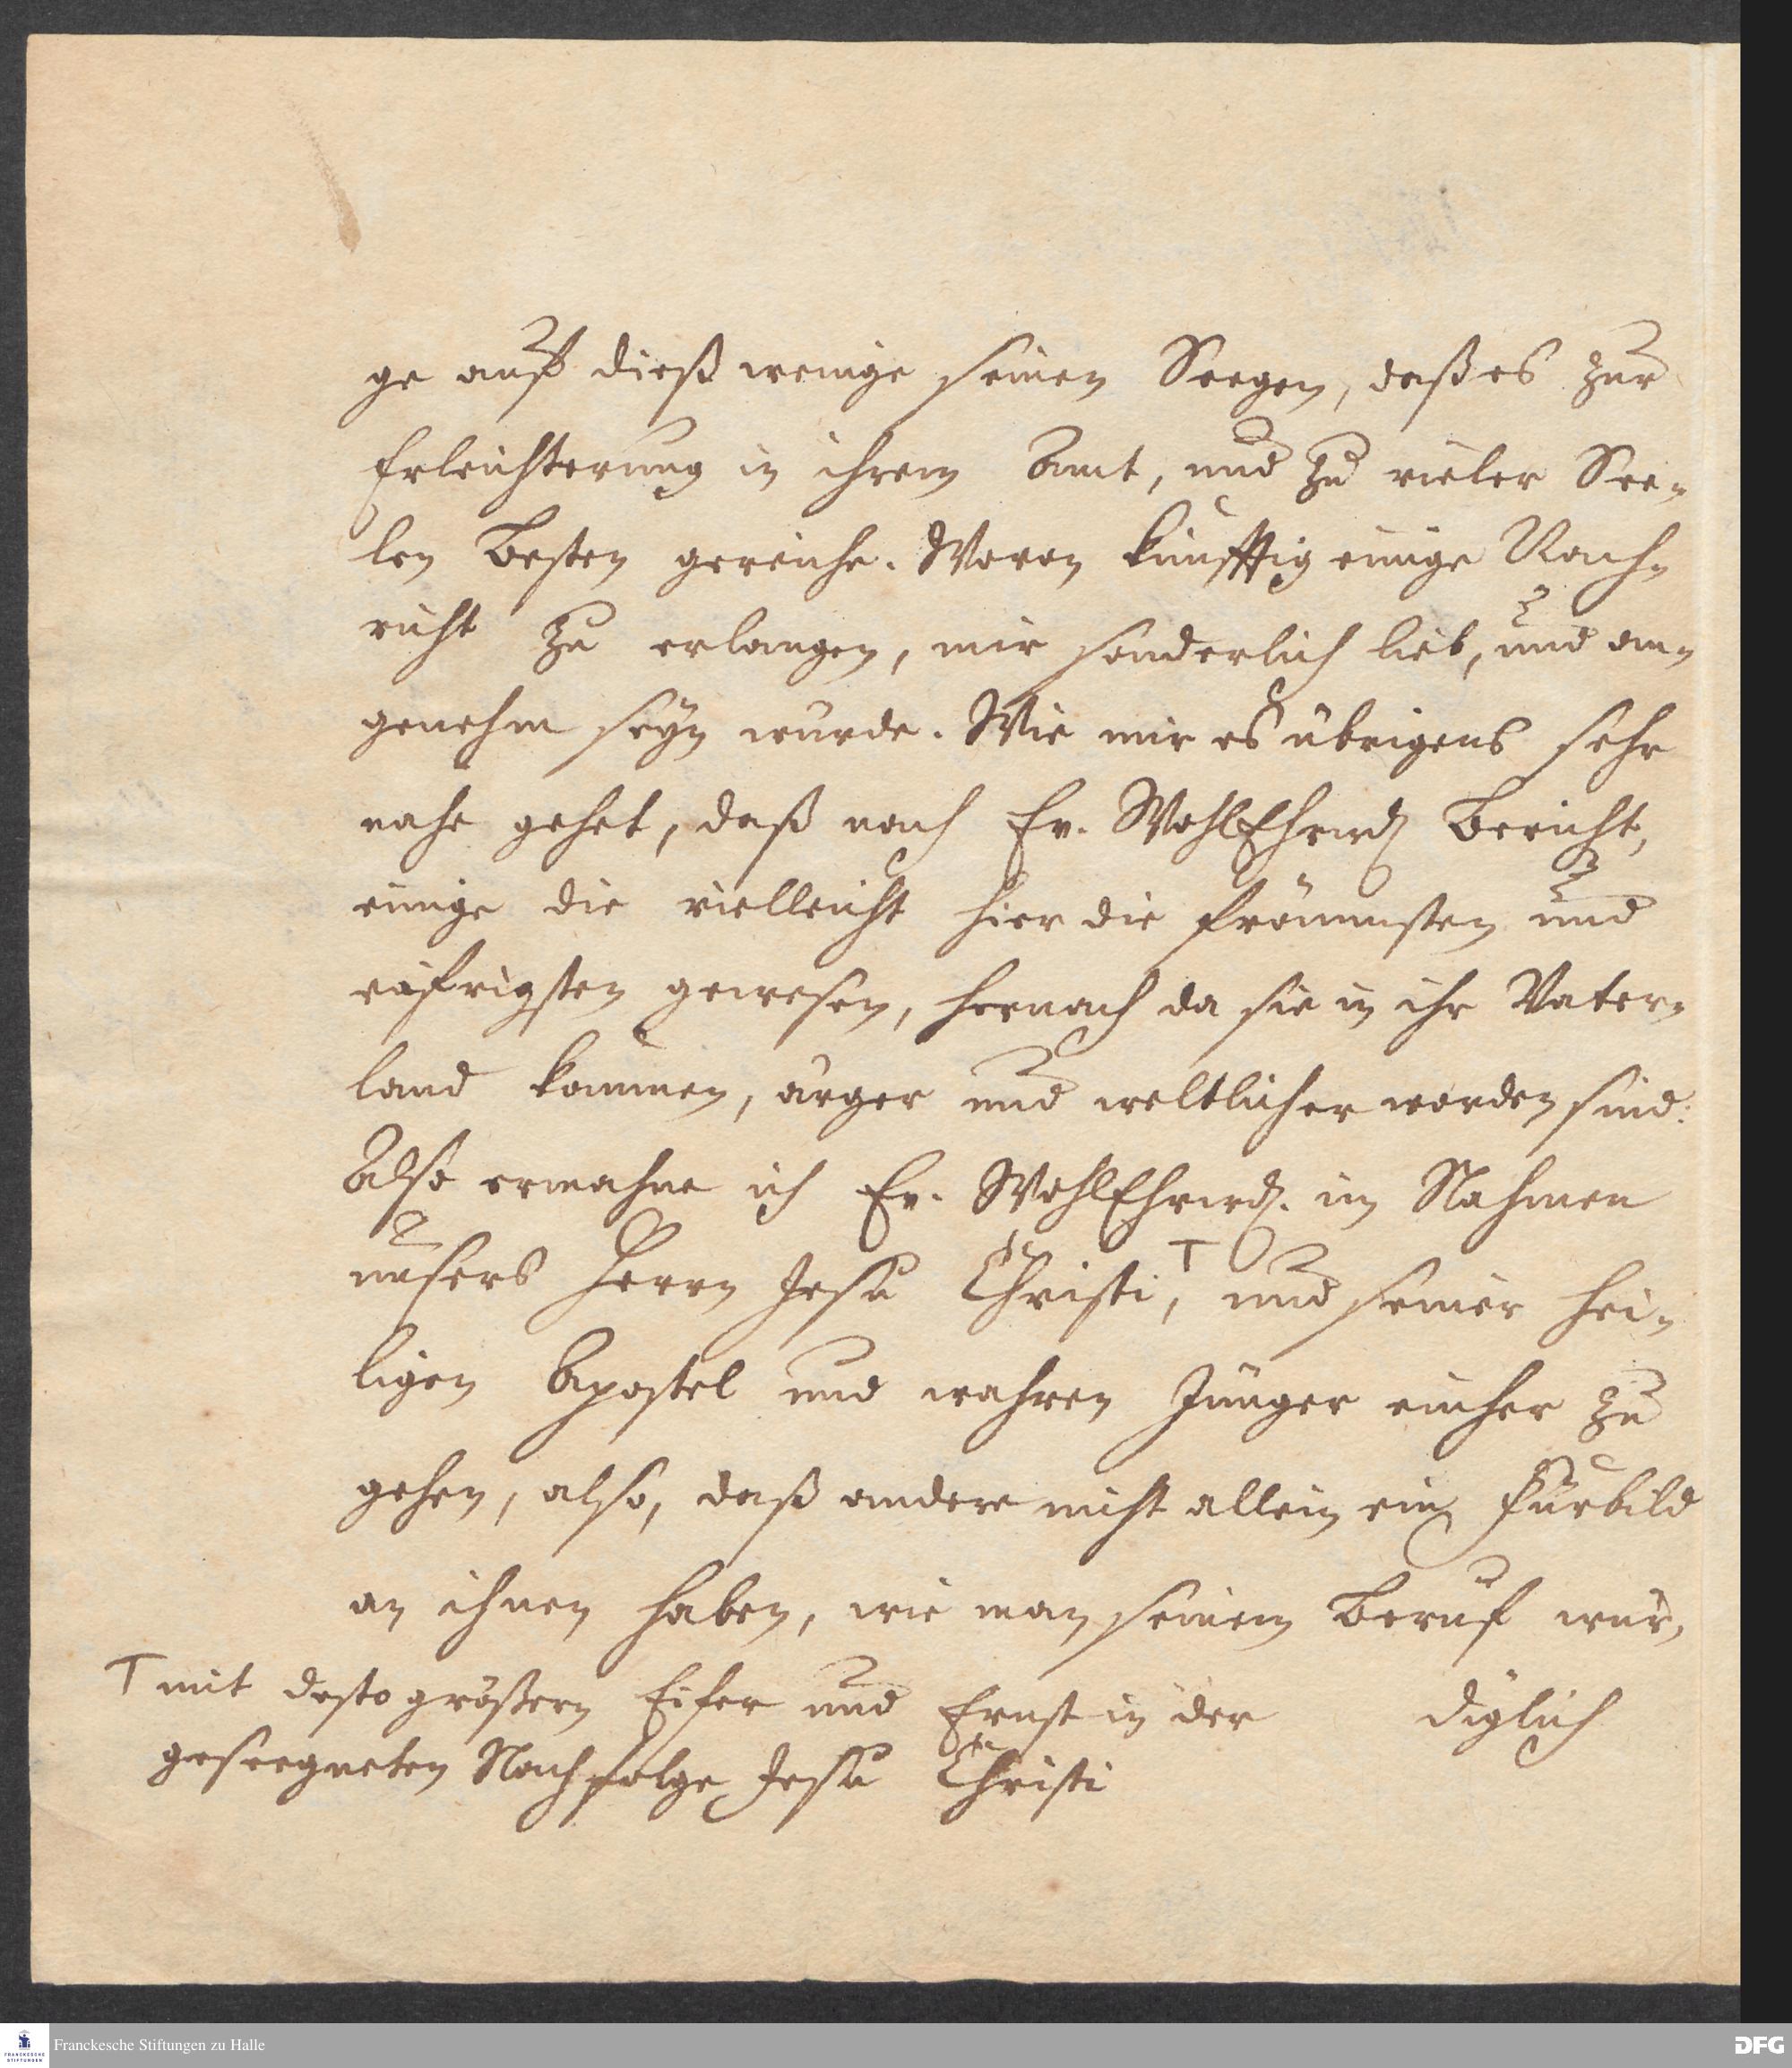 ge auf dieß wenige seinen Seegen, daß es zur
Erleichterung in ihrem Amt, und zu vieler See-
len Besten gereiche. Wovon künfftig einige Nach-
richt zu erlangen, mir sonderlich lieb, und an-
genehm seyn würde. Wie mir es übrigens sehr
nahe gehet, daß nach Ew. WohlEhrwd. Bericht,
einige die vielleicht hier die frömmsten und
eifrigsten gewesen, hernach da sie in ihr Vater-
land kommen, ärger und weltlicher worden sind:
Also ermahne ich Ew. WohlEhrwd. im Nahmen
unsers Herrn Jesu Christi, T und seiner hei-
ligen Apostel und wahren Jünger einher zu
gehen, also, daß andere nicht allein ein Fürbild
an ihnen haben, wie man seinem Beruf wür-
diglich
T mit desto größern Eifer und Ernst in der
geseegneten Nachfolge Jesu Christi
Franckesche Stiftungen zu Halle
FRANCKESCHE
STIFTUNGEN
DFG